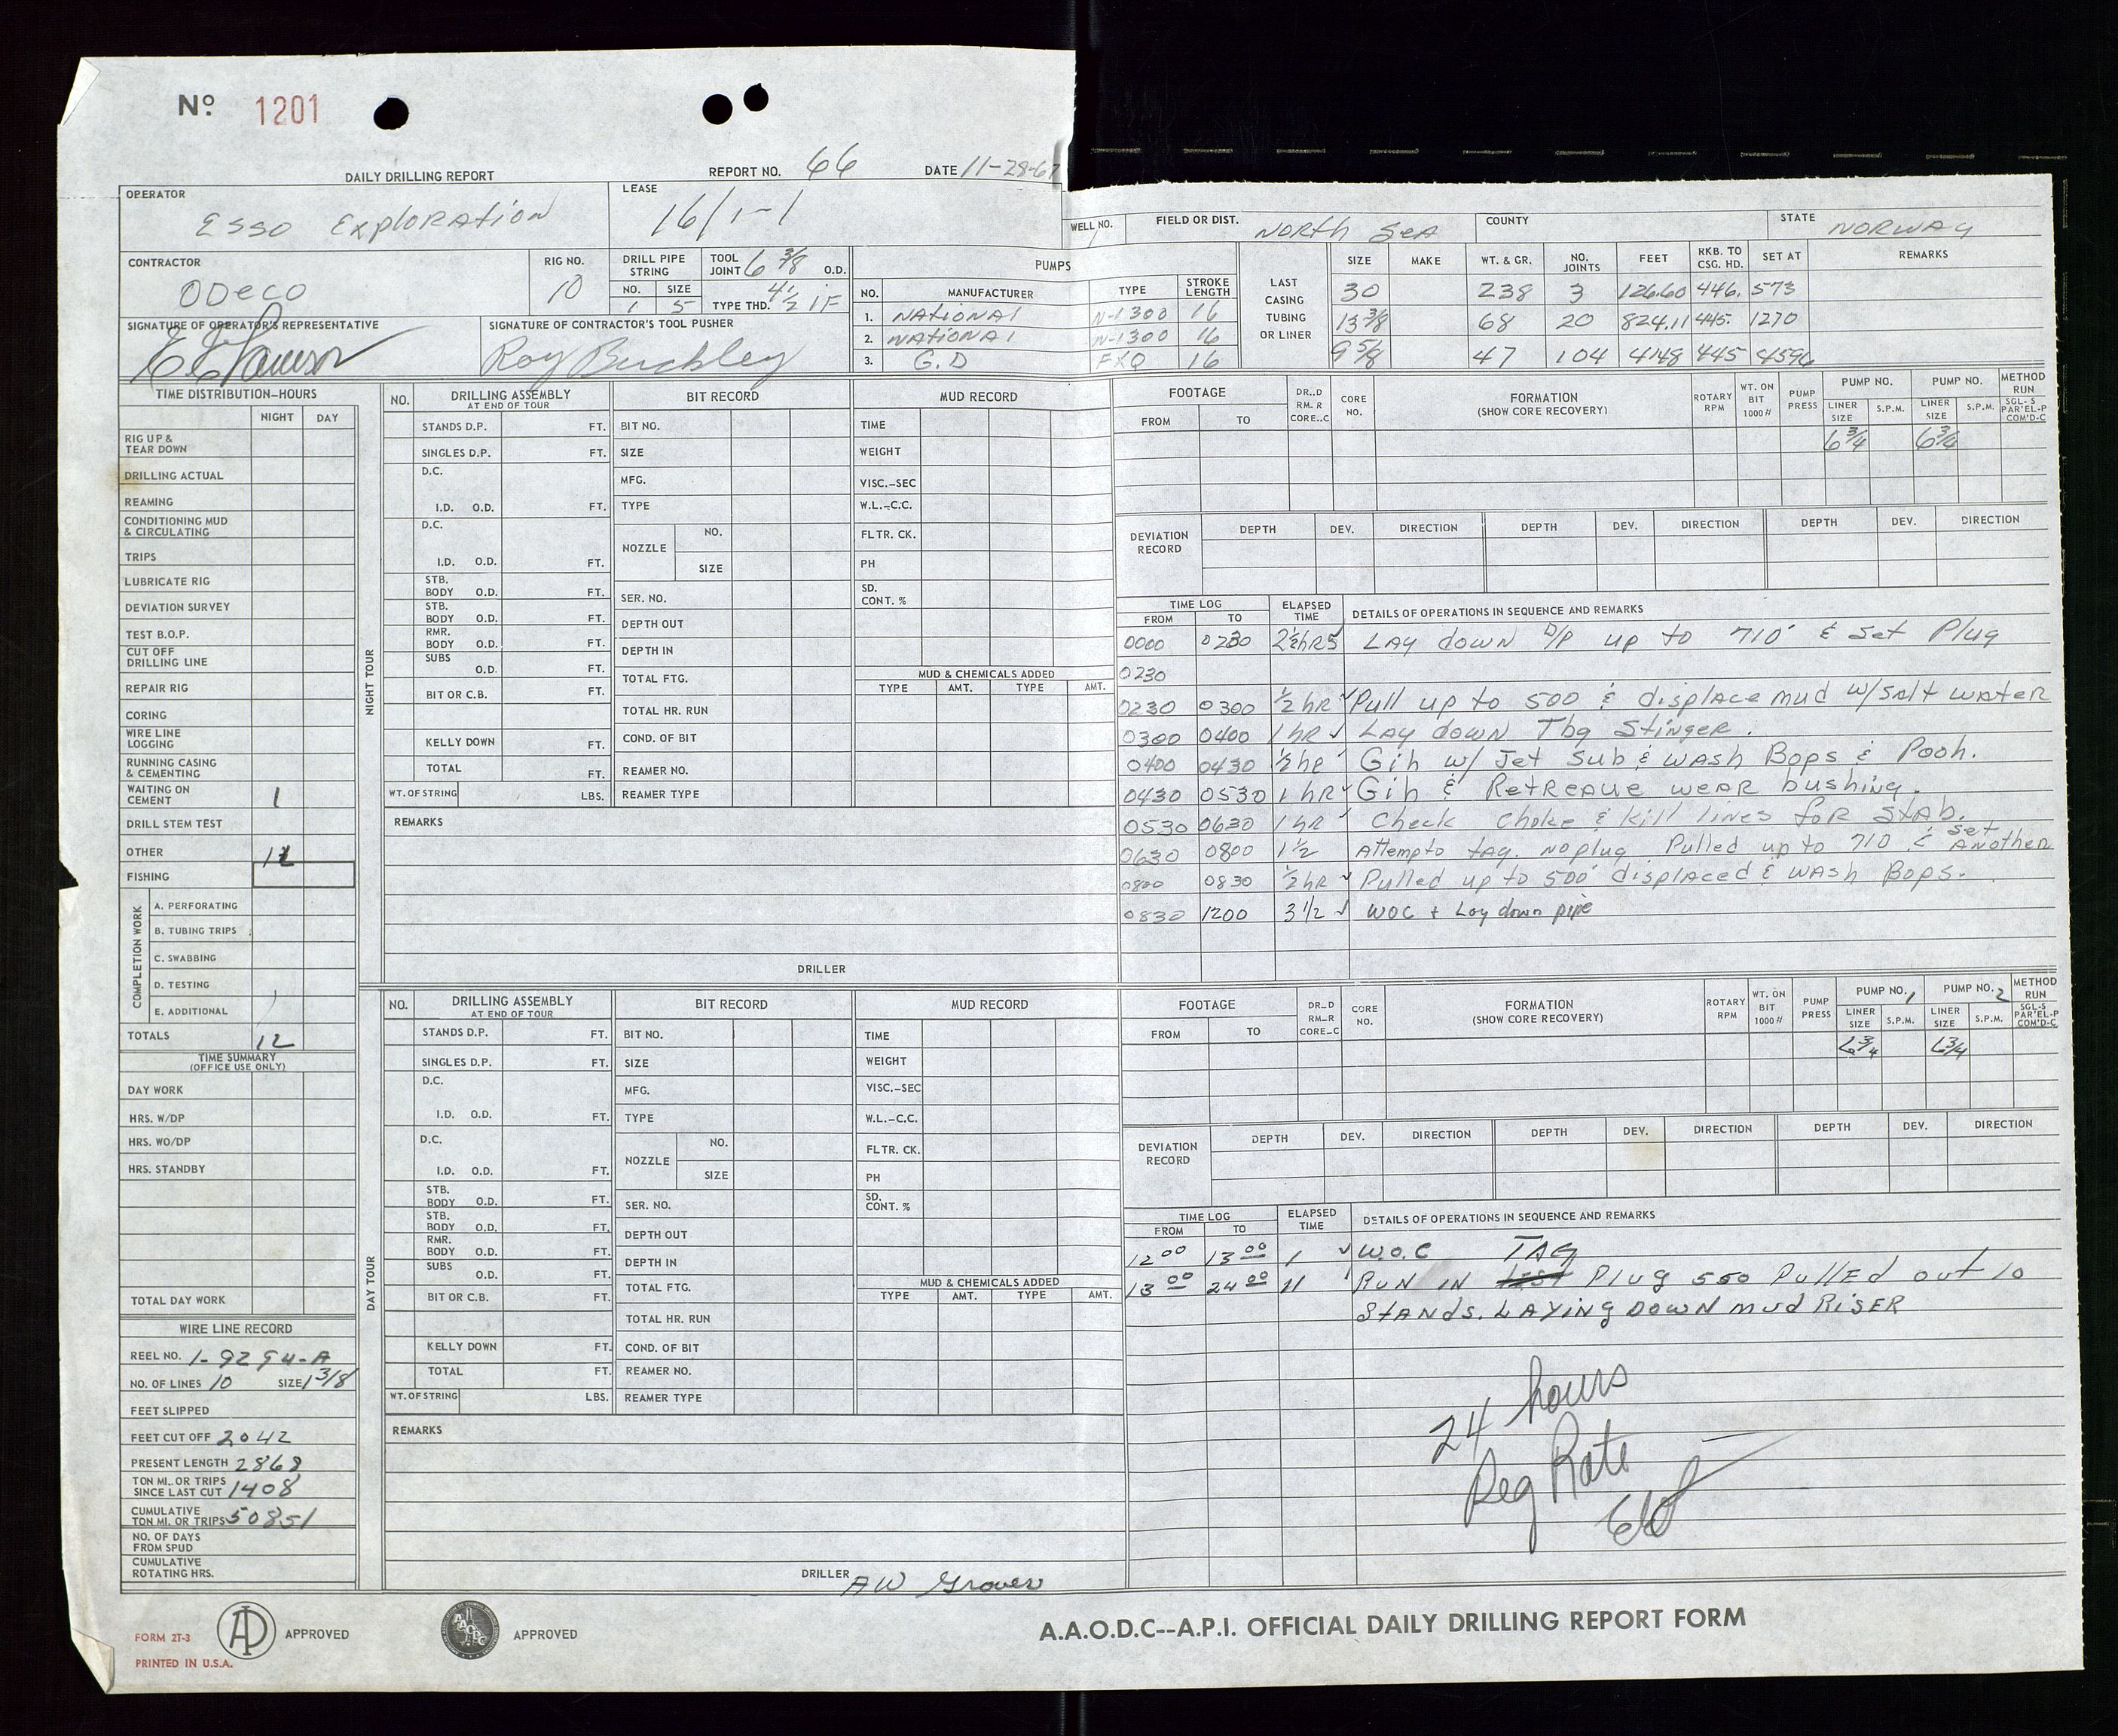 Nº 1201
DAILY DRILLING REPORT REPORT NO. 66 DATE 11-28-67
OPERATOR Esso Exploration LEASE 16/1-1 WELL NO. FIELD OR DIST. North Sea COUNTY STATE NORWAY
CONTRACTOR ODECO RIG NO. 10 DRILL PIPE STRING NO. 1 SIZE 5 TOOL JOINT 6 3/8 O.D. TYPE THD. 4 1/2 IF
SIGNATURE OF OPERATOR'S REPRESENTATIVE
SIGNATURE OF CONTRACTOR'S TOOL PUSHER Roy Buckley
PUMPS
NO. MANUFACTURER TYPE STROKE LENGTH
1. NATIONAL N-1300 16
2. NATIONAL N-1300 16
3. G.D FXQ 16
LAST CASING TUBING OR LINER
SIZE MAKE WT. & GR. NO. JOINTS FEET RKB. TO CSG. HD. SET AT REMARKS
30 238 3 126.60 446. 573
13 3/8 68 20 824.11 445. 1270
9 5/8 47 104 4148 445 4596
TIME DISTRIBUTION-HOURS
NIGHT DAY
RIG UP & TEAR DOWN
DRILLING ACTUAL
REAMING
CONDITIONING MUD & CIRCULATING
TRIPS
LUBRICATE RIG
DEVIATION SURVEY
TEST B.O.P.
CUT OFF DRILLING LINE
REPAIR RIG
CORING
WIRE LINE LOGGING
RUNNING CASING & CEMENTING
WAITING ON CEMENT 1
DRILL STEM TEST
OTHER
FISHING
COMPLETION WORK
A. PERFORATING
B. TUBING TRIPS
C. SWABBING
D. TESTING
E. ADDITIONAL
TOTALS 12
TIME SUMMARY
(OFFICE USE ONLY)
DAY WORK
HRS. W/DP
HRS. WO/DP
HRS. STANDBY
TOTAL DAY WORK
WIRE LINE RECORD
REEL NO. 1-9294-A
NO. OF LINES 10 SIZE 1 3/8
FEET SLIPPED
FEET CUT OFF 2042
PRESENT LENGTH 2868
TON MI. OR TRIPS SINCE LAST CUT 1408
CUMULATIVE TON MI. OR TRIPS 50851
NO. OF DAYS FROM SPUD
CUMULATIVE ROTATING HRS.
NIGHT TOUR
NO. DRILLING ASSEMBLY AT END OF TOUR
STANDS D.P. FT.
SINGLES D.P. FT.
D.C.
I.D. O.D. FT.
D.C.
I.D. O.D. FT.
STB. BODY O.D. FT.
STB. BODY O.D. FT.
RMR. BODY O.D. FT.
SUBS O.D. FT.
BIT OR C.B. FT.
KELLY DOWN FT.
TOTAL FT.
WT. OF STRING LBS.
BIT RECORD
BIT NO.
SIZE
MFG.
TYPE
NOZZLE NO.
SIZE
SER. NO.
DEPTH OUT
DEPTH IN
TOTAL FTG.
TOTAL HR. RUN
COND. OF BIT
REAMER NO.
REAMER TYPE
MUD RECORD
TIME
WEIGHT
VISC.-SEC
W.L.-C.C.
FLTR. CK.
PH
SD. CONT. %
MUD & CHEMICALS ADDED
TYPE AMT. TYPE AMT.
REMARKS
DRILLER
FOOTAGE FROM TO DR..D RM.R CORE..C CORE NO. FORMATION (SHOW CORE RECOVERY) ROTARY RPM WT. ON BIT 1000# PUMP PRESS PUMP NO. LINER SIZE S.P.M. PUMP NO. LINER SIZE S.P.M. METHOD RUN SGL-S PAR'EL-P COM'D-C
6 3/4 6 3/4
DEVIATION RECORD DEPTH DEV. DIRECTION DEPTH DEV. DIRECTION DEPTH DEV. DIRECTION
TIME LOG FROM TO ELAPSED TIME DETAILS OF OPERATIONS IN SEQUENCE AND REMARKS
0000 0230 2½hrs Lay down D/P up to 710' & Set Plug
0230
0230 0300 ½hr Pull up to 500 & displace mud w/salt water
0300 0400 1hr Lay down Tbg Stinger.
0400 0430 ½hr Gih w/ Jet Sub & wash Bops & Pooh.
0430 0530 1hr Gih & Retreaue wear bushing.
0530 0630 1hr Check choke & kill lines for Stab.
0630 0800 1½ Attempto tag. no plug Pulled up to 710 & set Another
0800 0830 ½hr Pulled up to 500' displaced & wash Bops.
0830 1200 3 1/2 WOC + Lay down pipe
DAY TOUR
NO. DRILLING ASSEMBLY AT END OF TOUR
STANDS D.P. FT.
SINGLES D.P. FT.
D.C.
I.D. O.D. FT.
D.C.
I.D. O.D. FT.
STB. BODY O.D. FT.
STB. BODY O.D. FT.
RMR. BODY O.D. FT.
SUBS O.D. FT.
BIT OR C.B. FT.
KELLY DOWN FT.
TOTAL FT.
WT. OF STRING LBS.
BIT RECORD
BIT NO.
SIZE
MFG.
TYPE
NOZZLE NO.
SIZE
SER. NO.
DEPTH OUT
DEPTH IN
TOTAL FTG.
TOTAL HR. RUN
COND. OF BIT
REAMER NO.
REAMER TYPE
MUD RECORD
TIME
WEIGHT
VISC.-SEC
W.L.-C.C.
FLTR. CK.
PH
SD. CONT. %
MUD & CHEMICALS ADDED
TYPE AMT. TYPE AMT.
REMARKS
DRILLER AW Graves
FOOTAGE FROM TO DR..D RM..R CORE..C CORE NO. FORMATION (SHOW CORE RECOVERY) ROTARY RPM WT. ON BIT 1000# PUMP PRESS PUMP NO. 1 LINER SIZE S.P.M. PUMP NO. 2 LINER SIZE S.P.M. METHOD RUN SGL-S PAR'EL-P COM'D-C
6 3/4 6 3/4
DEVIATION RECORD DEPTH DEV. DIRECTION DEPTH DEV. DIRECTION DEPTH DEV. DIRECTION
TIME LOG FROM TO ELAPSED TIME DETAILS OF OPERATIONS IN SEQUENCE AND REMARKS
12 00 13 00 1 W.O.C TAG
13 00 24 00 11 RUN IN Plug 550 Pulled out 10
Stands. LAYING DOWN mud RISER
24 hours
Reg Rate
FORM 2T-3
PRINTED IN U.S.A.
APPROVED
AAODC
APPROVED
A.A.O.D.C--A.P.I. OFFICIAL DAILY DRILLING REPORT FORM